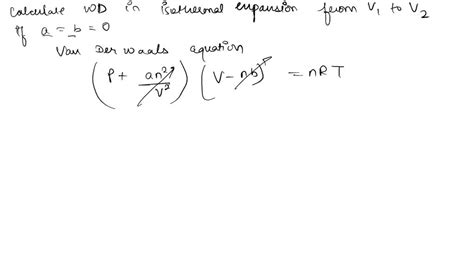 Calculate WD in isothermal expansion from V₁ to V₂
if a = b = 0
Van Der Waals equation
(P + an²/V²) (V - nb) = nRT